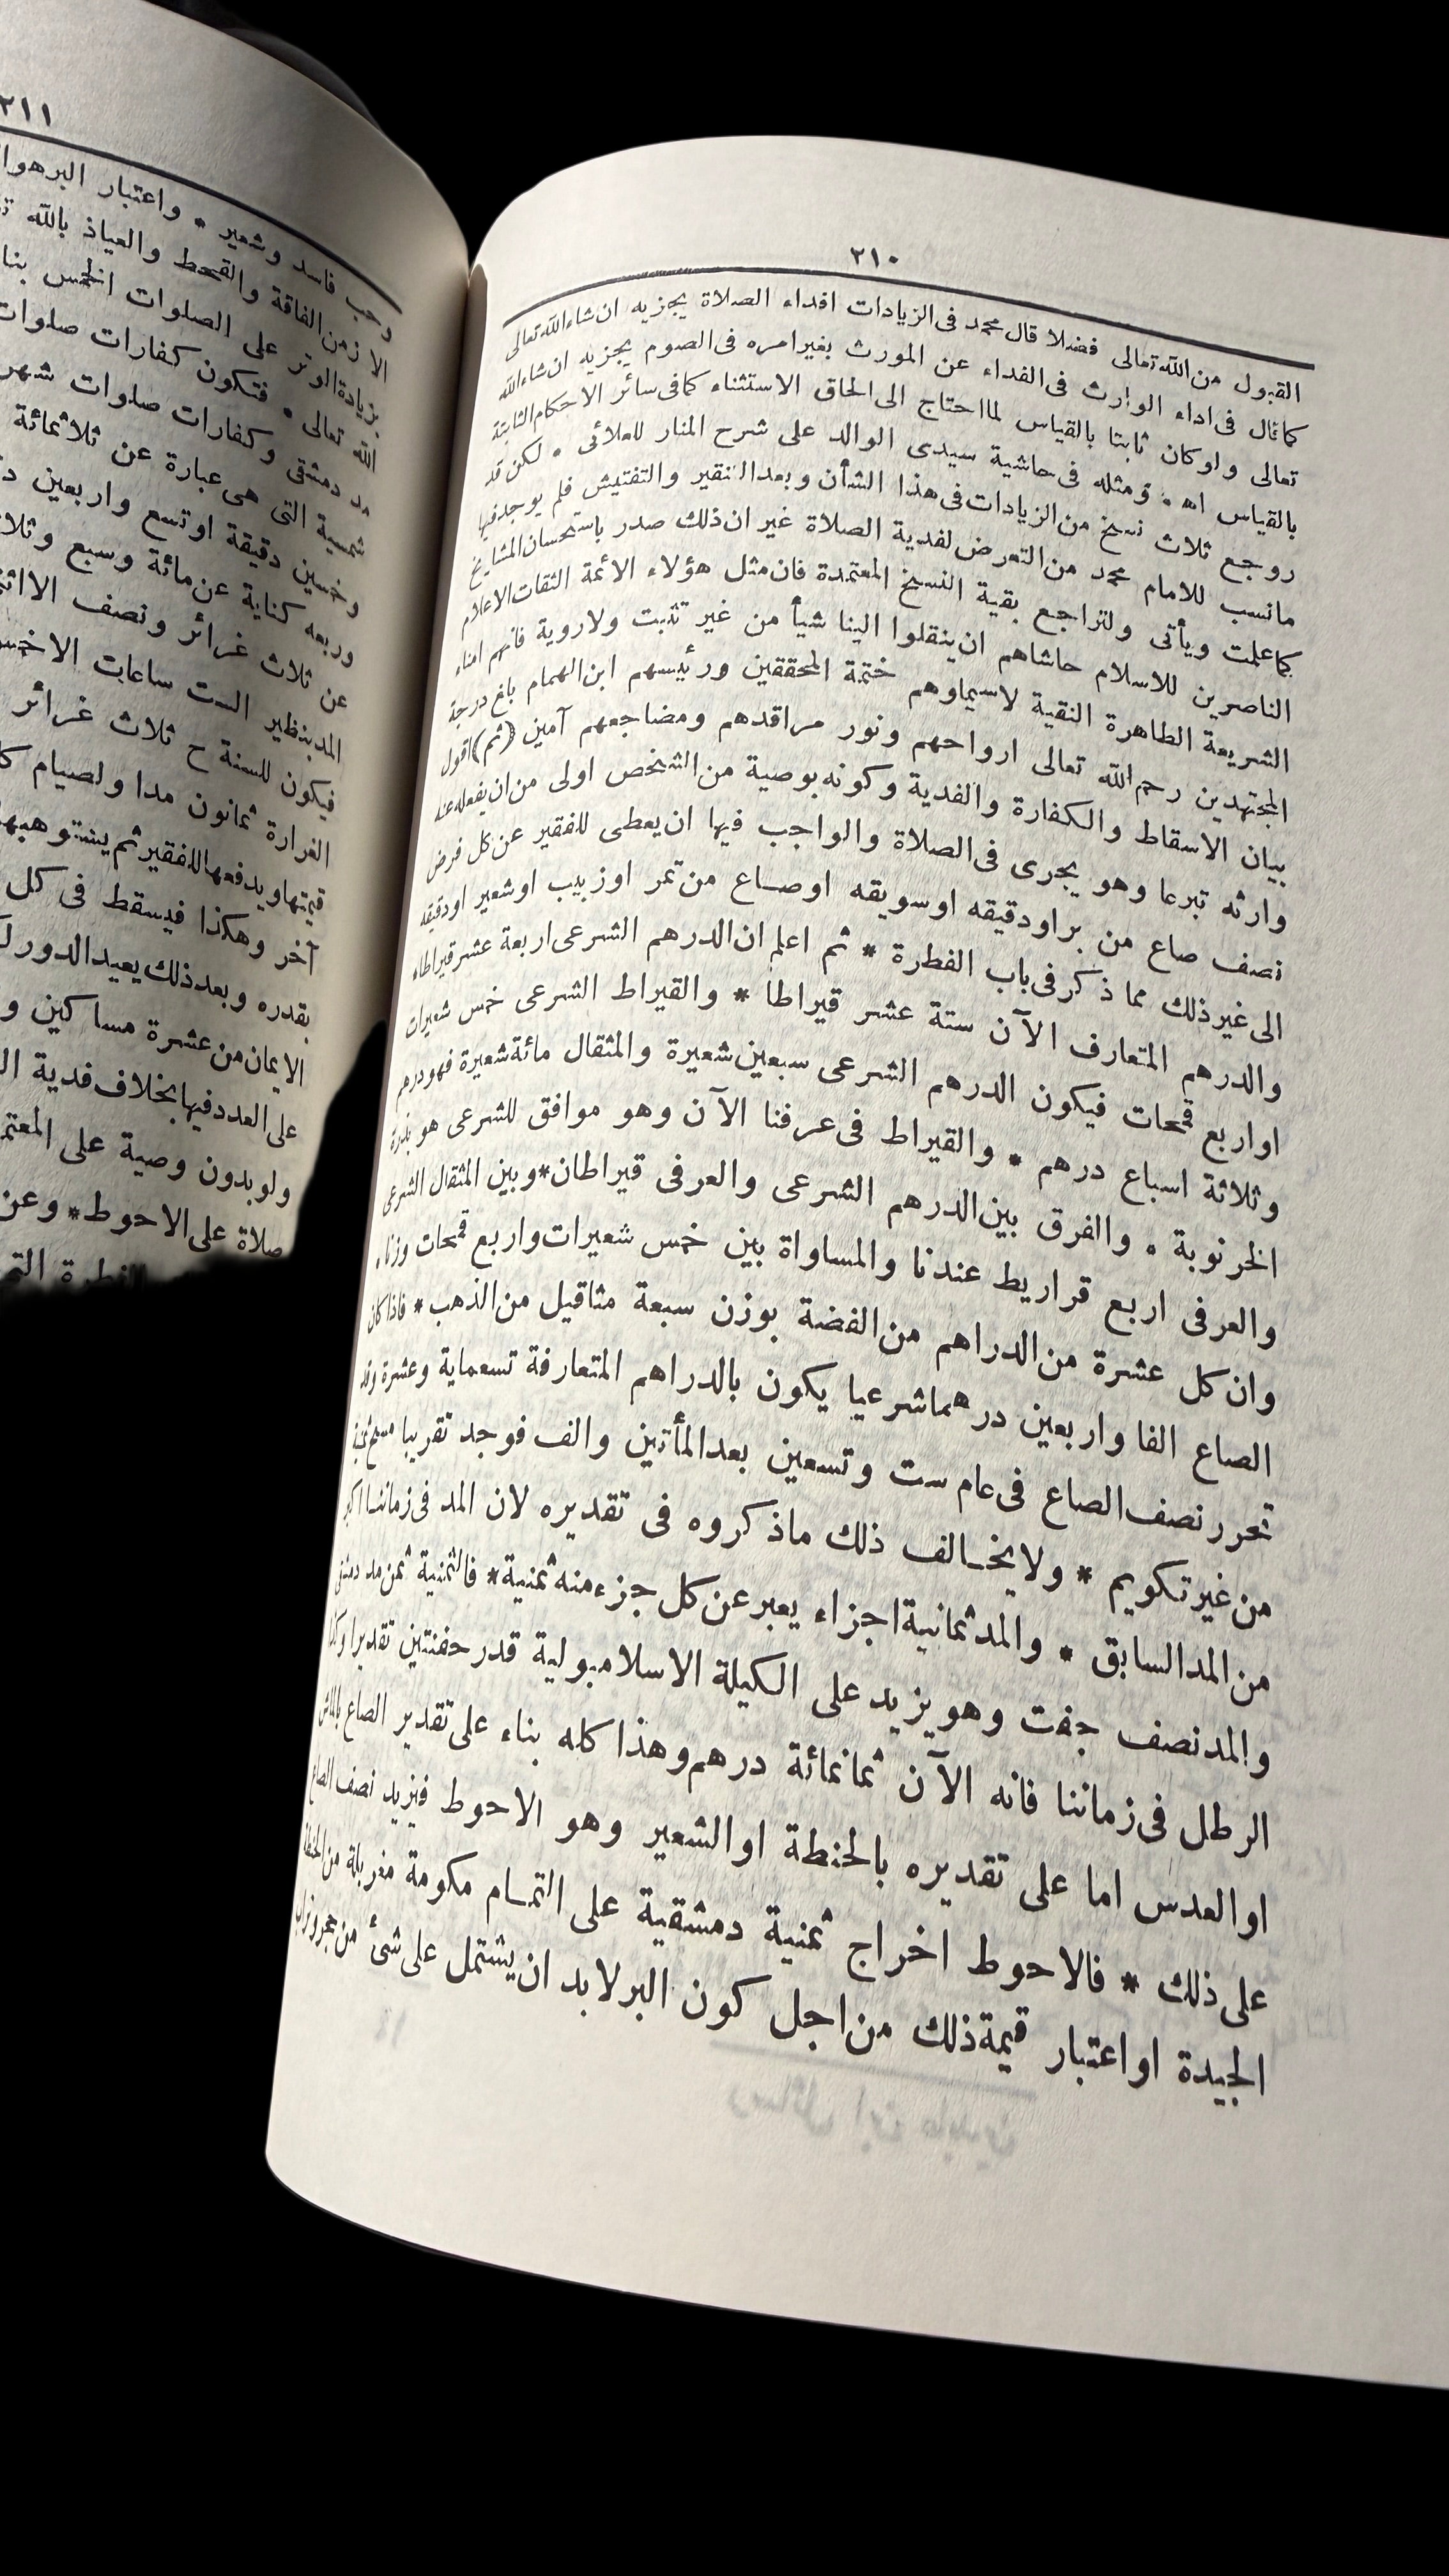 ٢١٠
القبول من الله تعالى فضلا قال محمد فى الزيادات افداء الصلاة يجزيه ان شاء الله تعالى
كما قال فى اداء الوارث فى الفداء عن المورث بغير امره فى الصوم يجزيه ان شاء الله
تعالى ولو كان ثابتا بالقياس لما احتاج الى الحاق الاستثناء كما فى سائر الاحكام الثابتة
بالقياس اه • ومثله فى حاشية سيدى الوالد على شرح المنار للعلائى • لكن قد
روجع ثلاث نسخ من الزيادات فى هذا الشأن وبعد النقير والتفتيش فلم يوجد فيها
مانسب للامام محمد من التعرض لفدية الصلاة غير ان ذلك صدر باستحسان المشايخ
كما علمت ويأتى ولتراجع بقية النسخ المعتمدة فان مثل هؤلاء الائمة الثقات الاعلام
الناصرين للاسلام حاشاهم ان ينقلوا الينا شيأ من غير تثبت ولا روية فانهم امناء
الشريعة الطاهرة النقية لاسيما وهم ختمة المحققين ورئيسهم ابن الهمام بلغ درجة
المجتهدين رحم الله تعالى ارواحهم ونور مراقدهم ومضاجعهم آمين (ثم) اقول
بيان الاسقاط والكفارة والفدية وكونه بوصية من الشخص اولى من ان يفعله عنه
وارثه تبرعا وهو يجرى فى الصلاة والواجب فيها ان يعطى للفقير عن كل فرض
نصف صاع من بر اودقيقه اوسويقه اوصاع من تمر اوزبيب اوشعير اودقيقه
الى غير ذلك مما ذكر فى باب الفطرة * ثم اعلم ان الدرهم الشرعى اربعة عشر قيراطا
والدرهم المتعارف الآن ستة عشر قيراطا * والقيراط الشرعى خمس شعيرات
او اربع قمحات فيكون الدرهم الشرعى سبعين شعيرة والمثقال مائة شعيرة فهو درهم
وثلاثة اسباع درهم * والقيراط فى عرفنا الآن وهو موافق للشرعى هو بزرة
الخرنوبة • والفرق بين الدرهم الشرعى والعرفى قيراطان * وبين المثقال الشرعى
والعرفى اربع قراريط عندنا والمساواة بين خمس شعيرات واربع قمحات وزنا •
وان كل عشرة من الدراهم من الفضة بوزن سبعة مثاقيل من الذهب * فاذا كان
الصاع الفا واربعين درهما شرعيا يكون بالدراهم المتعارفة تسعماية وعشرة وقد
تحرر نصف الصاع فى عام ست وتسعين بعد المأتين والف فوجد تقريبا
من غير تكويم * ولا يخالف ذلك ماذكروه فى تقديره لان المد فى زماننا اكبر
من المد السابق * والمد ثمانية اجزاء يعبر عن كل جزء منه ثمنية * فالثمنية ثمن مد دمشقى
والمد نصف جفت وهو يزيد على الكيلة الاسلامبولية قدر حفنتين تقديرا وكذا
الرطل فى زماننا فانه الآن ثمانمائة درهم وهذا كله بناء على تقدير الصاع بالماش
او العدس اما على تقديره بالحنطة او الشعير وهو الاحوط فيزيد نصف الصاع
على ذلك * فالاحوط اخراج ثمنية دمشقية على التمام مكومة مغربلة من الحنطة
الجيدة او اعتبار قيمة ذلك من اجل كون البر لابد ان يشتمل على شئ من حجر وتراب
٢١١
وحب فاسد وشعير * واعتبار البر
الا زمن الفاقة والقحط والعياذ بالله
بزيادة الوتر على الصلوات الخمس
الله تعالى • فتكون كفارات صلوات
مد دمشقى وكفارات صلوات شهر
شمسية التى هى عبارة عن ثلاثمائة
وخمسين دقيقة او تسع واربعين
وربعه كناية عن مائة وسبع
عن ثلاث غرائر ونصف
المد بنظير الست ساعات
فيكون للسنة ح ثلاث غرائر
الغرارة ثمانون مدا ولصيام
قيمتها ويدفعها للفقير ثم يستوهبها
آخر وهكذا فيسقط فى كل
بقدره وبعد ذلك يعيد الدور
الايمان من عشرة مساكين
على العدد فيها بخلاف فدية
ولو بدون وصية على
صلاة على الاحوط * وعن
الفطرة